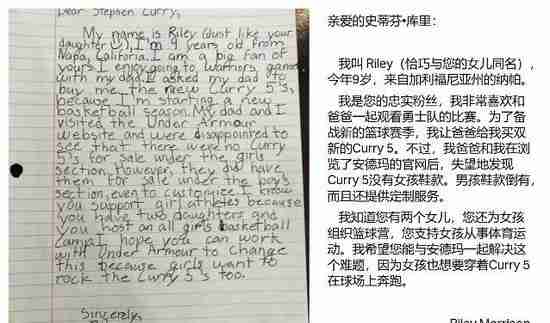 Dear Stephen Curry,
My name is Riley (just like your
daughter), I'm 9 years old from
Napa, Califorina. I am a big fan of
yours. I enjoy going to Warriors games
with my dad. I asked my dad to
buy me the new Curry 5's,
because I'm starting a new
basketball season. My dad and I
visited the Under Armour
website and were disappointed to
see that there were no Curry
5's for sale under the girls
section. However, they did have
them for sale under the boy's
section, even to customize. I know
you support girl athletes because
you have two daughters and
you host an all girls basketball
camp. I hope you can work
with Under Armour to change
this because girls want to
rock the Curry 5's too.
Sincerely,
亲爱的史蒂芬•库里：
我叫 Riley（恰巧与您的女儿同名），
今年9岁，来自加利福尼亚州的纳帕。
我是您的忠实粉丝，我非常喜欢和
爸爸一起观看勇士队的比赛。为了备
战新的篮球赛季，我让爸爸给我买双
新的Curry 5。不过，我爸爸和我在浏
览了安德玛的官网后，失望地发现
Curry 5没有女孩鞋款。男孩鞋款倒有，
而且还提供定制服务。
我知道您有两个女儿，您还为女孩
组织篮球营，您支持女孩从事体育运
动。我希望您能与安德玛一起解决这
个难题，因为女孩也想要穿着Curry 5
在球场上奔跑。
Riley Morrison